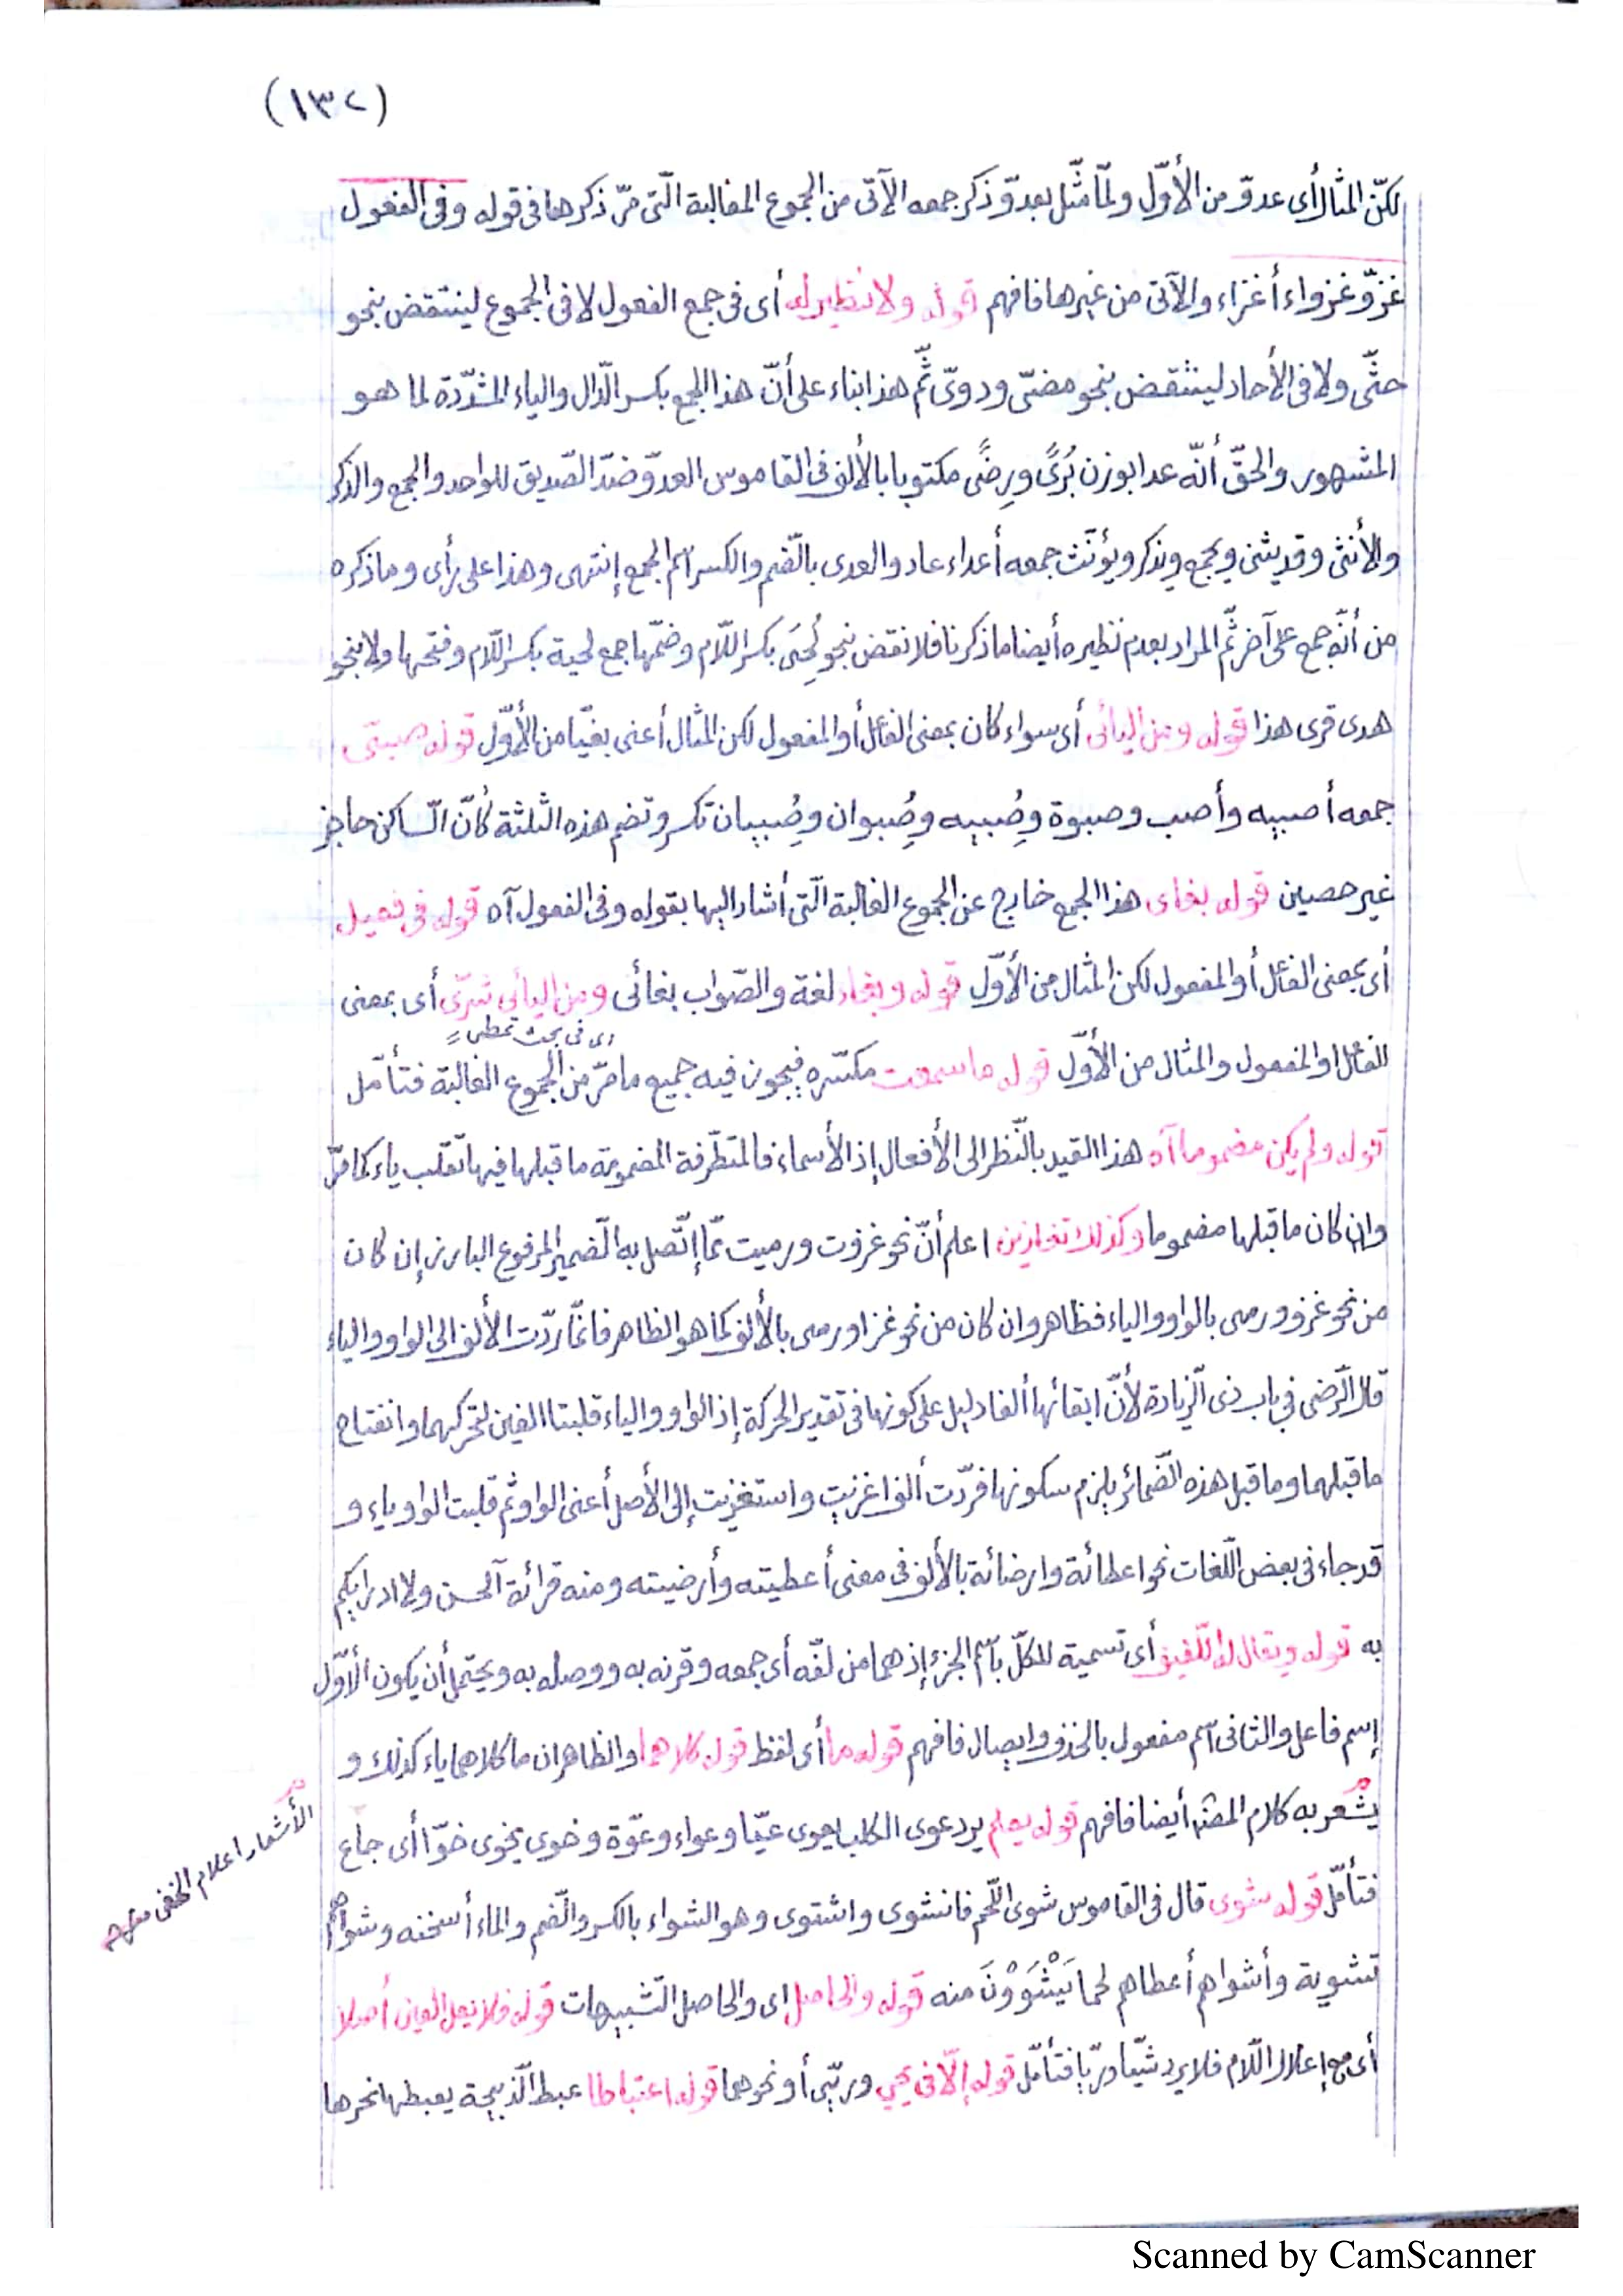 (١٣٢)
لكنّ المثال أى عدوّ من الأوّل ولمّا مثّل بعدوّ وذكر جمعه الآتى من الجموع الغالبة الّتى مرّ ذكرها فى قوله وفى الفعول
غزوّ غزواء أغزاء والآتى من غيرها فافهم قوله ولا نظير له أى فى جمع الفعول لا فى الجموع لينتقض بنحو
حتّى ولا فى الأحاد لينتقض بنحو مضىّ ودوىّ ثمّ هذا بناء على أنّ هذا الجمع بكسر الدّال والياء المشدّدة لما هو
المشهور والحقّ أنّه عدا بوزن بُرًى ورِضًى مكتوبا بالألف فى القاموس العدوّ ضدّ الصّديق للواحد والجمع والذكر
والأنثى وقد يثنى ويجمع ويذكر ويؤنّث جمعه أعداء عاد والعدى بالضّم والكسر اسم الجمع إنتهى وهذا على رأى وما ذكره
من أنّه جمع على آخر ثمّ المراد بعدم نظيره أيضا ما ذكرنا فلا نقض بنحو لُحِىَ بكسر اللّام وضمّها جمع لحية بكسر اللّام وفتحها ولا بنحو
هدى قرى هذا قوله ومن اليائى أى سواء كان بمعنى الفاعل أو المفعول لكن المثال أعنى بغيّا من الأوّل قوله صبىّ
جمعه أصبيه وأصب وصبوة وصُِبيه وصُِبوان وصُِبيان تكسر وتضم هذه الثلثة كأنّ السّاكن حاجز
غير حصين قوله بغاى هذا الجمع خارج عن الجموع الغالبة الّتى أشار إليها بقوله وفى الفعول آه قوله فى فعيل
أى بمعنى الفاعل أو المفعول لكن المثال من الأوّل قوله وبغاء لغة والصّواب بغائى ومن اليائى شرىّ أى بمعنى
اى فى بحث تمطى
الفاعل او المفعول والمثال من الأوّل قوله ما سمعت مكسّره فيجوز فيه جميع ما مرّ من الجموع الغالبة فتأمّل
قوله ولم يكن مضموما آه هذا القيد بالنّظر إلى الأفعال إذ الأسماء فالمتطّرفة المضمومة ما قبلها فيها تقلب ياء كما مرّ
وإن كان ما قبلها مضموما وكذلك تغازين اعلم أنّ نحو غزوت ورميت ممّا إتّصل به الضّمير المرفوع البارز إن كان
من نحو غزو ورمى بالواو والياء فظاهر وان كان من نحو غزا ورمى بالألف كما هو الظاهر فانّما ردّت الألف الى الواو والياء
قال الرّضى فى باب ذى الزّيادة لأنّ ابقائها ألفا دليل على كونها فى تقدير الحركة إذ الواو والياء قلبتا الفين لتحركهما وانفتاح
ما قبلهما وما قبل هذه الضّمائر يلزم سكونها فردّت ألف اغزيت واستغزيت إلى الأصل أعنى الواو ثم قلبت الواو ياء و
قد جاء فى بعض اللّغات نحو اعطائة وارضائة بالألف فى معنى أعطيته وأرضيته ومنه قرائة الحسن ولا ادرايكم
به قوله ويقال له اللّفيف أى تسمية للكلّ باسم الجزء إذ هما من لفّه أى جمعه وقرنه به ووصله به ويحتمل أن يكون الأوّل
إسم فاعل والثانى اسم مفعول بالحذف وايصال فافهم قوله ما أى لفظ قوله كلاهما والظاهر ان ما كلاهما ياء كذلك و
يشعر به كلام المصنّف أيضا فافهم قوله يعلم يرد عوى الكلب يعوى عيّا وعواء وعوّة وخوى يخوى خوّا أى جاع
الأشعار اعلام الخفى منه
فتأمّل قوله شوى قال فى القاموس شوى اللّحم فانشوى واشتوى وهو الشواء بالكسر والضّم والماء أسخنه وشواهم
تشوية وأشواهم أعطاهم لحما يَشْوُوْنَ منه قوله والحاصل اى والحاصل التّشبيهات قوله فلا يعل العين أصلا
أى مع إعلال اللّام فلا يرد شيّا وريّا فتأمّل قوله إلّا فى يحيى وريّى أو نحوهما قوله اعتباطا عبط الذّبيحة يعبطها نحرها
Scanned by CamScanner